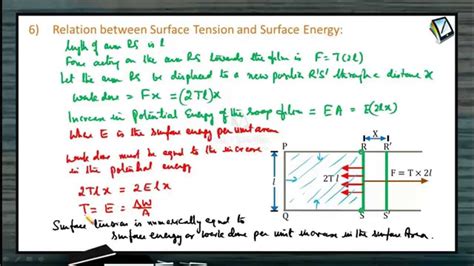 6) Relation between Surface Tension and Surface Energy:
length of arm RS is l
Force acting on the arm RS towards the film is F = T(2l)
Let the arm RS be displaced to a new position R'S' through a distance x
work done = Fx = (2Tl)x
Increase in Potential Energy of the soap film = EA = E(2lx)
Where E is the surface energy per unit area
Work done must be equal to the increase
in the potential energy
2Tlx = 2Elx
T = E = ΔW/A
Surface tension is numerically equal to
surface energy or work done per unit increase in the surface Area.
X
P R R'
2Tl l F = T × 2l
Q S S'